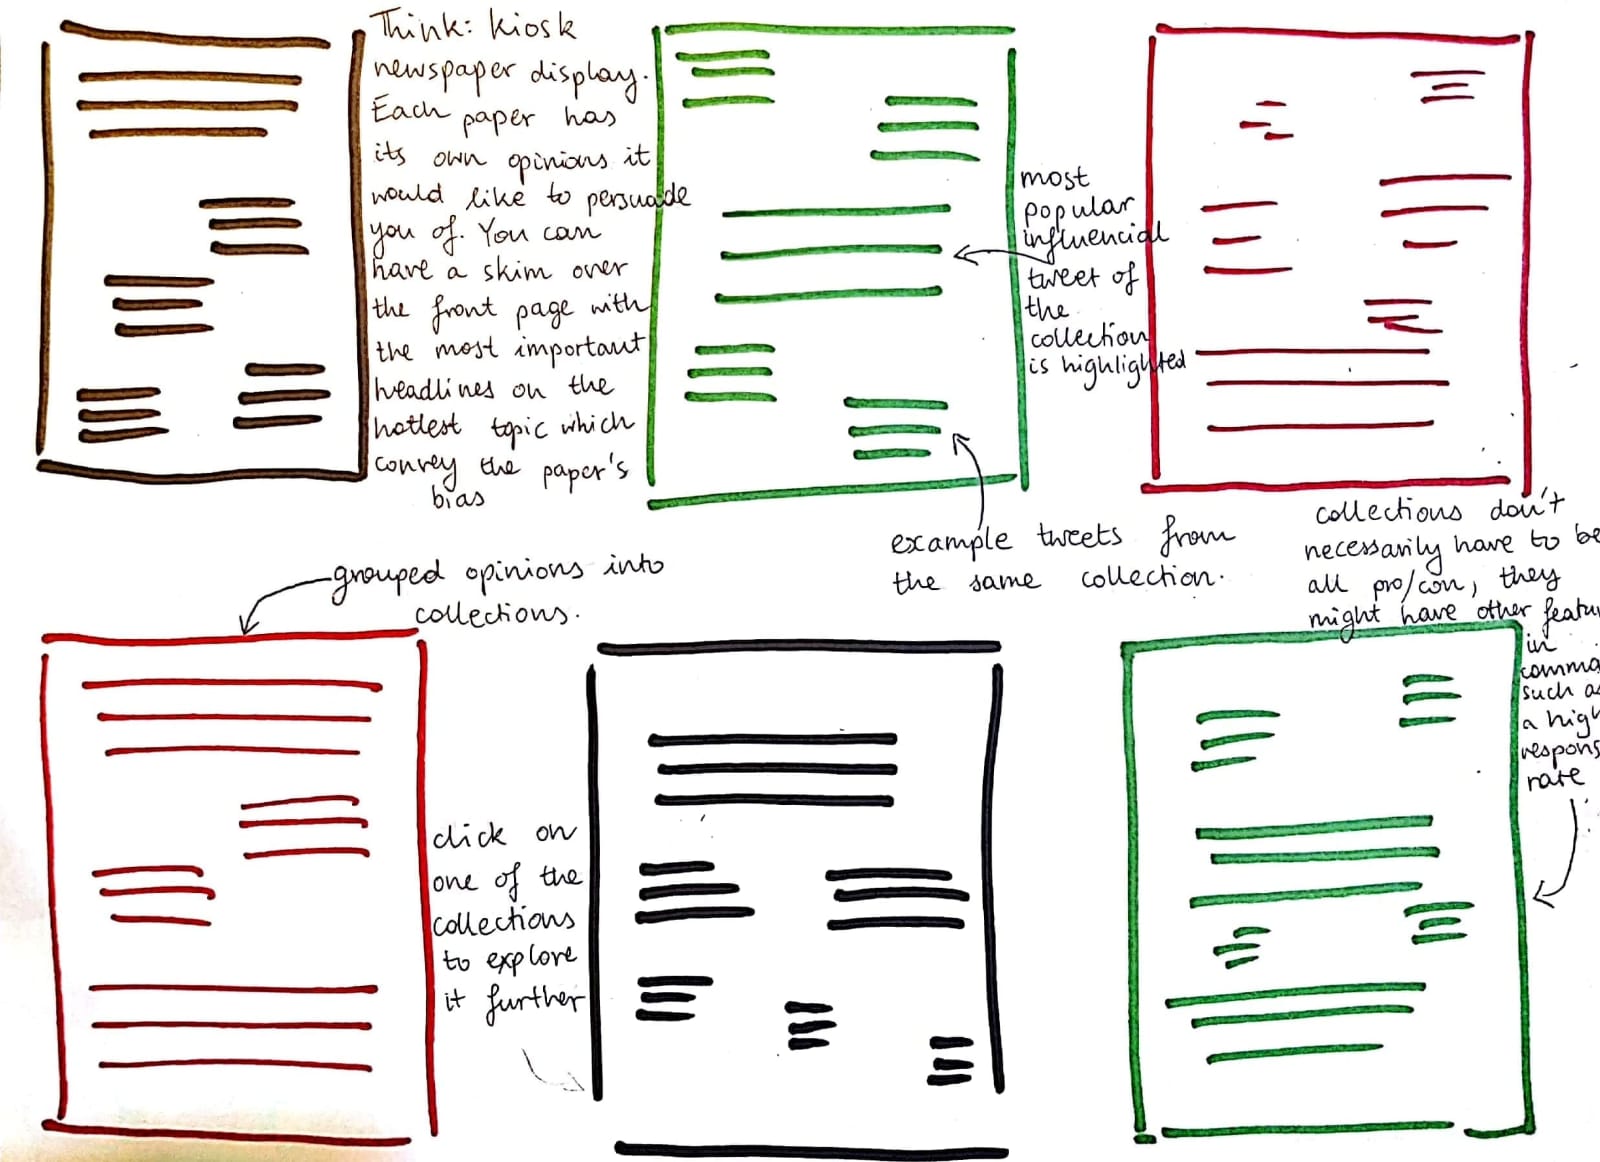 Think: Kiosk
newspaper display.
Each paper has
its own opinions it
would like to persuade
you of. You can
have a skim over
the front page with
the most important
headlines on the
hottest topic which
convey the paper's
bias
most
popular
influencial
tweet of
the
collection
is highlighted
example tweets from
the same collection.
collections don't
necessarily have to be
all pro/con, they
might have other featur
in
commo
such as
a high
respons
rate
grouped opinions into
collections.
click on
one of the
collections
to explore
it further